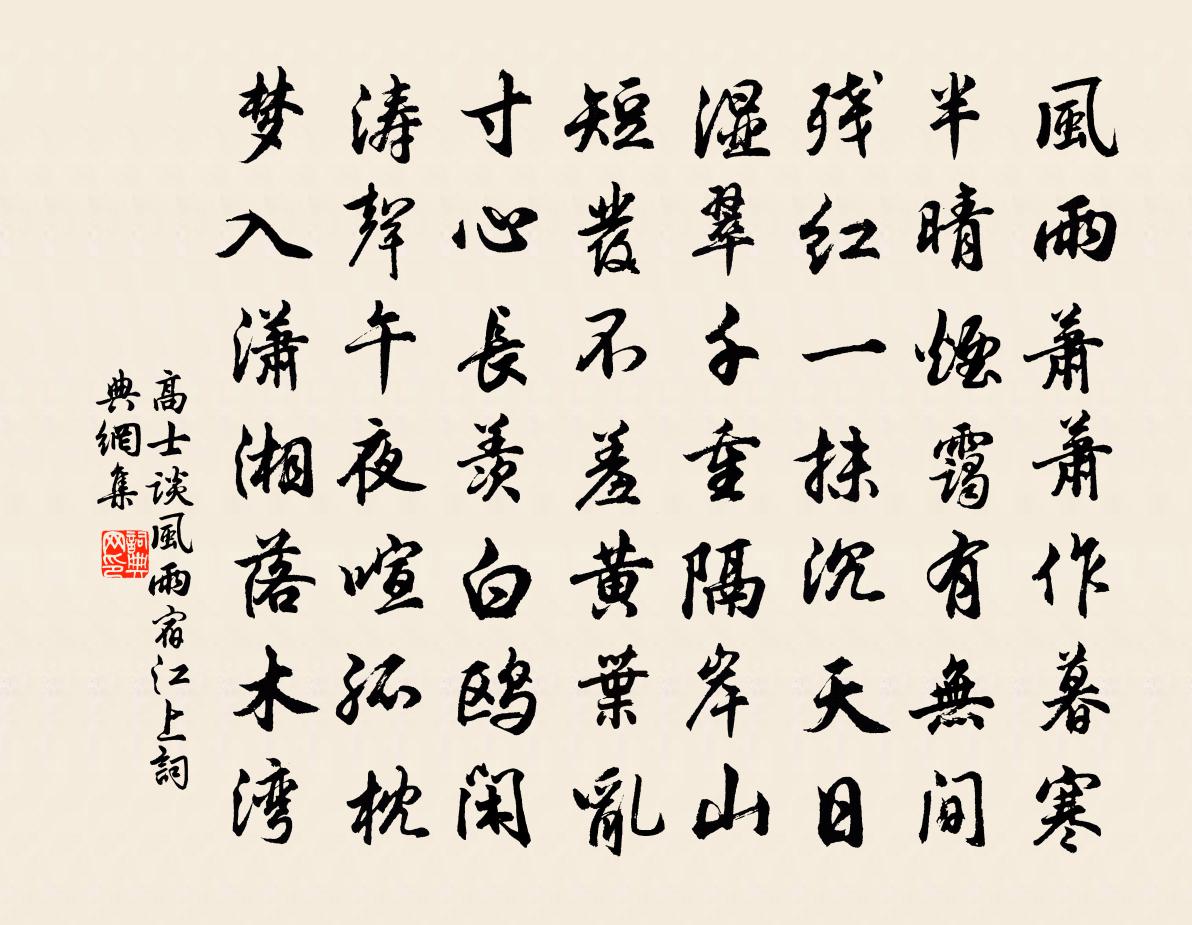 風雨蕭蕭作暮寒
半晴煙靄有無間
残紅一抹沉天日
湿翠千重隔岸山
短發不羞黄葉亂
寸心長羨白鸥閑
涛聲午夜喧孤枕
梦入潇湘落木湾
高士談風雨宿江上詞
典網集
詞典网印